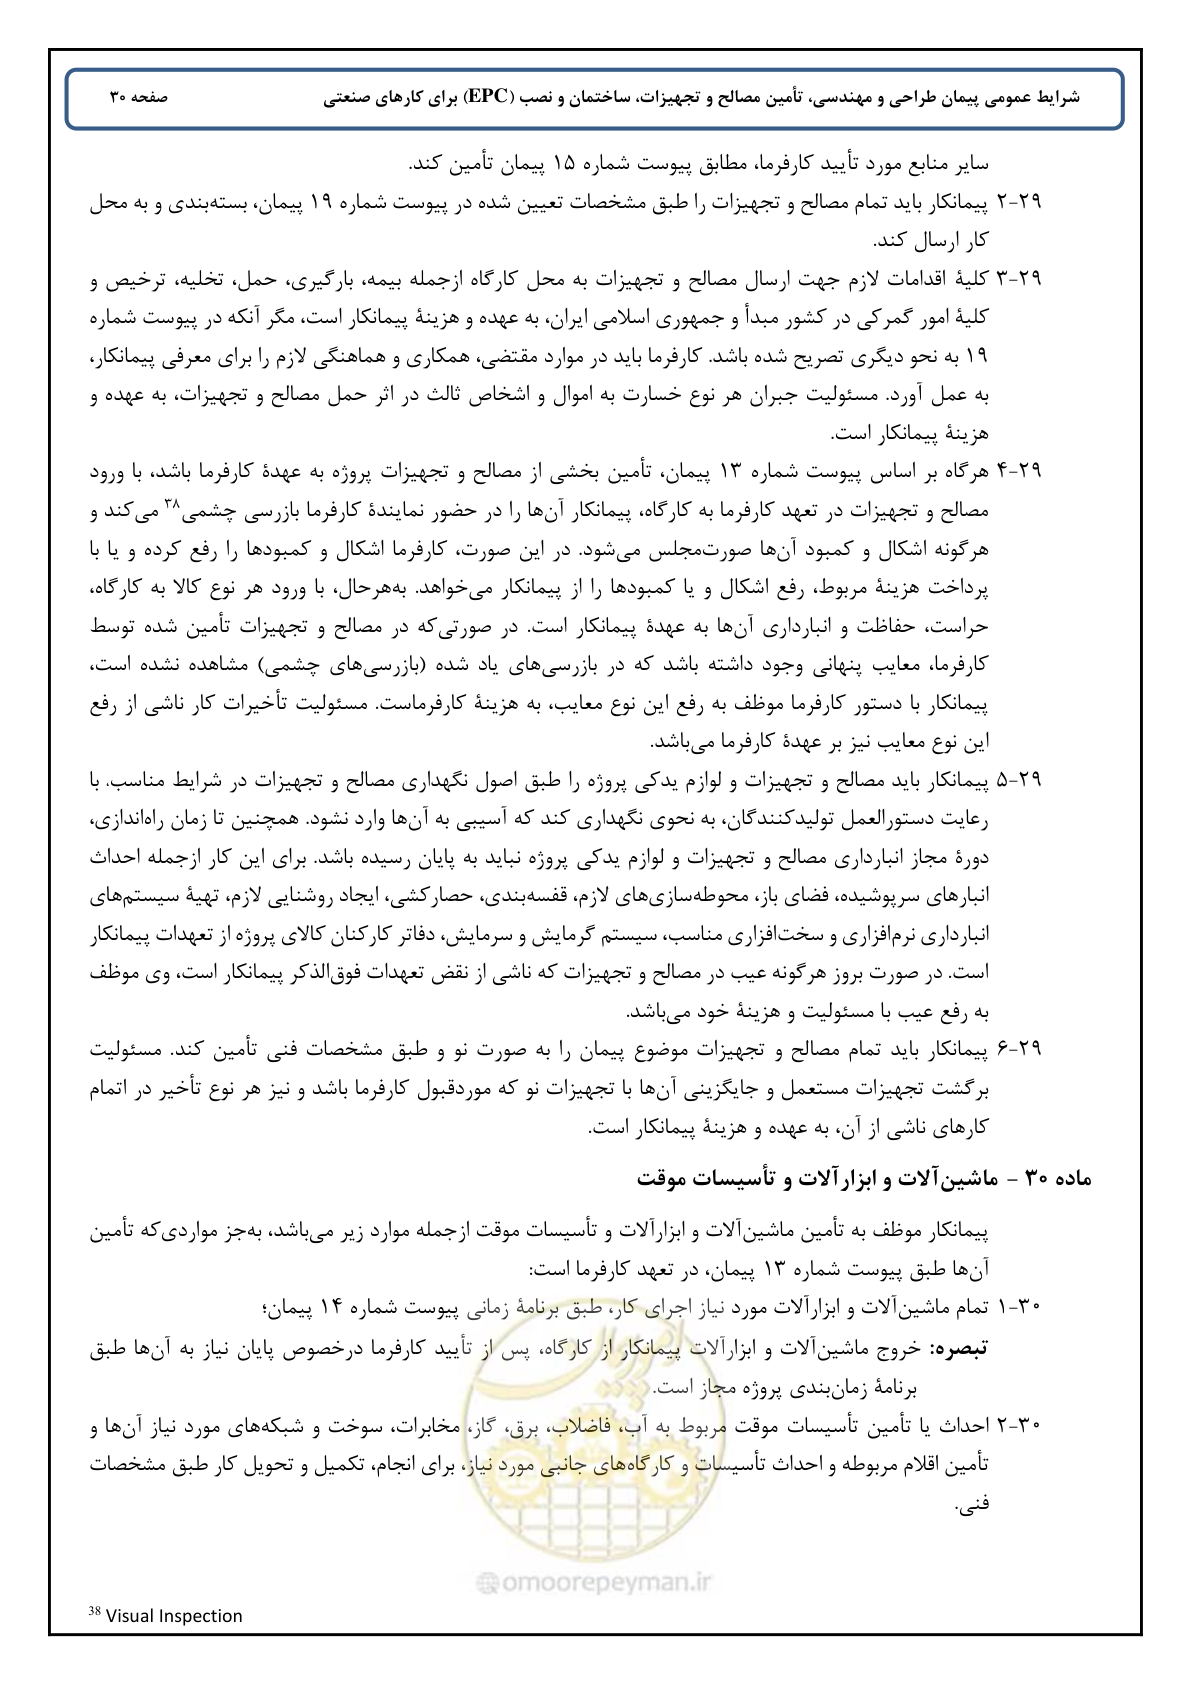 شرایط عمومی پیمان طراحی و مهندسی، تأمین مصالح و تجهیزات، ساختمان و نصب (EPC) برای کارهای صنعتی صفحه ۳۰
سایر منابع مورد تأیید کارفرما، مطابق پیوست شماره ۱۵ پیمان تأمین کند.
۲-۲۹ پیمانکار باید تمام مصالح و تجهیزات را طبق مشخصات تعیین شده در پیوست شماره ۱۹ پیمان، بسته‌بندی و به محل
کار ارسال کند.
۳-۲۹ کلیۀ اقدامات لازم جهت ارسال مصالح و تجهیزات به محل کارگاه ازجمله بیمه، بارگیری، حمل، تخلیه، ترخیص و
کلیۀ امور گمرکی در کشور مبدأ و جمهوری اسلامی ایران، به عهده و هزینۀ پیمانکار است، مگر آنکه در پیوست شماره
۱۹ به نحو دیگری تصریح شده باشد. کارفرما باید در موارد مقتضی، همکاری و هماهنگی لازم را برای معرفی پیمانکار،
به عمل آورد. مسئولیت جبران هر نوع خسارت به اموال و اشخاص ثالث در اثر حمل مصالح و تجهیزات، به عهده و
هزینۀ پیمانکار است.
۴-۲۹ هرگاه بر اساس پیوست شماره ۱۳ پیمان، تأمین بخشی از مصالح و تجهیزات پروژه به عهدۀ کارفرما باشد، با ورود
مصالح و تجهیزات در تعهد کارفرما به کارگاه، پیمانکار آن‌ها را در حضور نمایندۀ کارفرما بازرسی چشمی۳۸ می‌کند و
هرگونه اشکال و کمبود آن‌ها صورت‌مجلس می‌شود. در این صورت، کارفرما اشکال و کمبودها را رفع کرده و یا با
پرداخت هزینۀ مربوط، رفع اشکال و یا کمبودها را از پیمانکار می‌خواهد. به‌هرحال، با ورود هر نوع کالا به کارگاه،
حراست، حفاظت و انبارداری آن‌ها به عهدۀ پیمانکار است. در صورتی‌که در مصالح و تجهیزات تأمین شده توسط
کارفرما، معایب پنهانی وجود داشته باشد که در بازرسی‌های یاد شده (بازرسی‌های چشمی) مشاهده نشده است،
پیمانکار با دستور کارفرما موظف به رفع این نوع معایب، به هزینۀ کارفرماست. مسئولیت تأخیرات کار ناشی از رفع
این نوع معایب نیز بر عهدۀ کارفرما می‌باشد.
۵-۲۹ پیمانکار باید مصالح و تجهیزات و لوازم یدکی پروژه را طبق اصول نگهداری مصالح و تجهیزات در شرایط مناسب، با
رعایت دستورالعمل تولیدکنندگان، به نحوی نگهداری کند که آسیبی به آن‌ها وارد نشود. همچنین تا زمان راه‌اندازی،
دورۀ مجاز انبارداری مصالح و تجهیزات و لوازم یدکی پروژه نباید به پایان رسیده باشد. برای این کار ازجمله احداث
انبارهای سرپوشیده، فضای باز، محوطه‌سازی‌های لازم، قفسه‌بندی، حصارکشی، ایجاد روشنایی لازم، تهیۀ سیستم‌های
انبارداری نرم‌افزاری و سخت‌افزاری مناسب، سیستم گرمایش و سرمایش، دفاتر کارکنان کالای پروژه از تعهدات پیمانکار
است. در صورت بروز هرگونه عیب در مصالح و تجهیزات که ناشی از نقض تعهدات فوق‌الذکر پیمانکار است، وی موظف
به رفع عیب با مسئولیت و هزینۀ خود می‌باشد.
۶-۲۹ پیمانکار باید تمام مصالح و تجهیزات موضوع پیمان را به صورت نو و طبق مشخصات فنی تأمین کند. مسئولیت
برگشت تجهیزات مستعمل و جایگزینی آن‌ها با تجهیزات نو که موردقبول کارفرما باشد و نیز هر نوع تأخیر در اتمام
کارهای ناشی از آن، به عهده و هزینۀ پیمانکار است.
ماده ۳۰ – ماشین‌آلات و ابزارآلات و تأسیسات موقت
پیمانکار موظف به تأمین ماشین‌آلات و ابزارآلات و تأسیسات موقت ازجمله موارد زیر می‌باشد، به‌جز مواردی‌که تأمین
آن‌ها طبق پیوست شماره ۱۳ پیمان، در تعهد کارفرما است:
۱-۳۰ تمام ماشین‌آلات و ابزارآلات مورد نیاز اجرای کار، طبق برنامۀ زمانی پیوست شماره ۱۴ پیمان؛
تبصره: خروج ماشین‌آلات و ابزارآلات پیمانکار از کارگاه، پس از تأیید کارفرما درخصوص پایان نیاز به آن‌ها طبق
برنامۀ زمان‌بندی پروژه مجاز است.
۲-۳۰ احداث یا تأمین تأسیسات موقت مربوط به آب، فاضلاب، برق، گاز، مخابرات، سوخت و شبکه‌های مورد نیاز آن‌ها و
تأمین اقلام مربوطه و احداث تأسیسات و کارگاه‌های جانبی مورد نیاز، برای انجام، تکمیل و تحویل کار طبق مشخصات
فنی.
امور پیمان
@omoorepeyman.ir
38 Visual Inspection